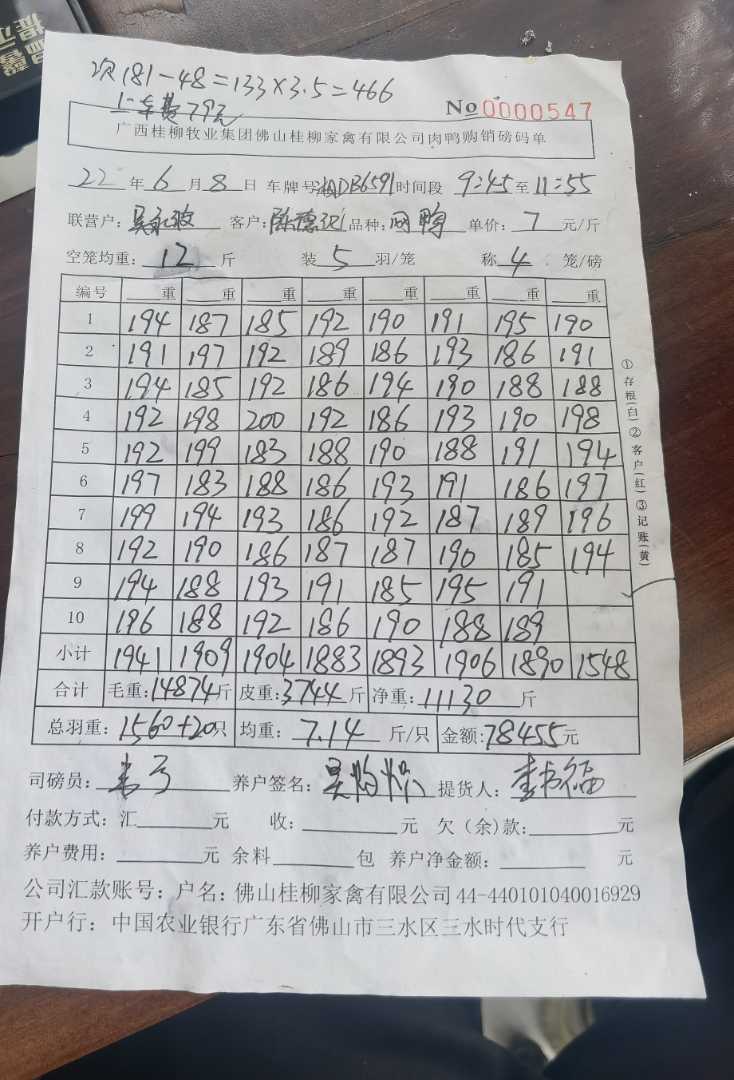 次181-48=133×3.5=466
No 0000547
广西桂柳牧业集团佛山桂柳家禽有限公司肉鸭购销磅码单
22年6月8日 车牌号湘DB6591时间段 9:45至11:55
联营户: 客户: 品种: 鸭 单价: 7 元/斤
空笼均重: 12 斤 装 5 羽/笼 称 4 笼/磅
编号 重 重 重 重 重 重 重 重
1 194 187 185 192 190 191 195 190
2 191 197 192 189 186 193 186 191
3 194 185 192 186 194 190 188 188
4 192 198 200 192 186 193 190 198
5 192 199 183 188 190 188 191 194
6 197 183 188 186 193 191 186 197
7 199 194 193 186 192 187 189 196
8 192 190 186 187 187 190 185 194
9 194 188 193 191 185 195 191
10 196 188 192 186 190 188 189
小计 1941 1909 1904 1883 1893 1906 1890 1548
合计 毛重:14874斤 皮重:3744斤 净重:11130斤
总羽重:1560+20只 均重:7.14斤/只 金额:78455元
司磅员: 养户签名: 提货人:李书福
付款方式:汇 元 收: 元 欠(余)款: 元
养户费用: 元 余料 包 养户净金额: 元
公司汇款账号:户名:佛山桂柳家禽有限公司 44-440101040016929
开户行:中国农业银行广东省佛山市三水区三水时代支行
①存根(白)②客户(红)③记账(黄)
温馨
提示